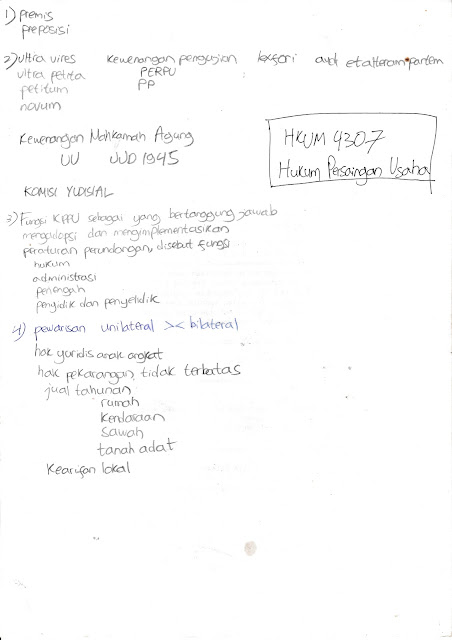 1) premis
preposisi
2) ultra vires kewenangan pengujian lex fori audi et alteram partem
ultra petita PERPU
petitum PP
novum
Kewenangan Mahkamah Agung
UU UUD 1945
HKUM 4307
Hukum Persaingan Usaha
KOMISI YUDISIAL
3) Fungsi KPPU sebagai yang bertanggung jawab
mengadopsi dan mengimplementasikan
peraturan perundangan, disebut fungsi
hukum
administrasi
penengah
penyidik dan penyelidik
4) pewarisan unilateral >< bilateral
hak yuridis anak angkat
hak pekarangan tidak terbatas
jual tahunan
rumah
kendaraan
sawah
tanah adat
Kearifan lokal